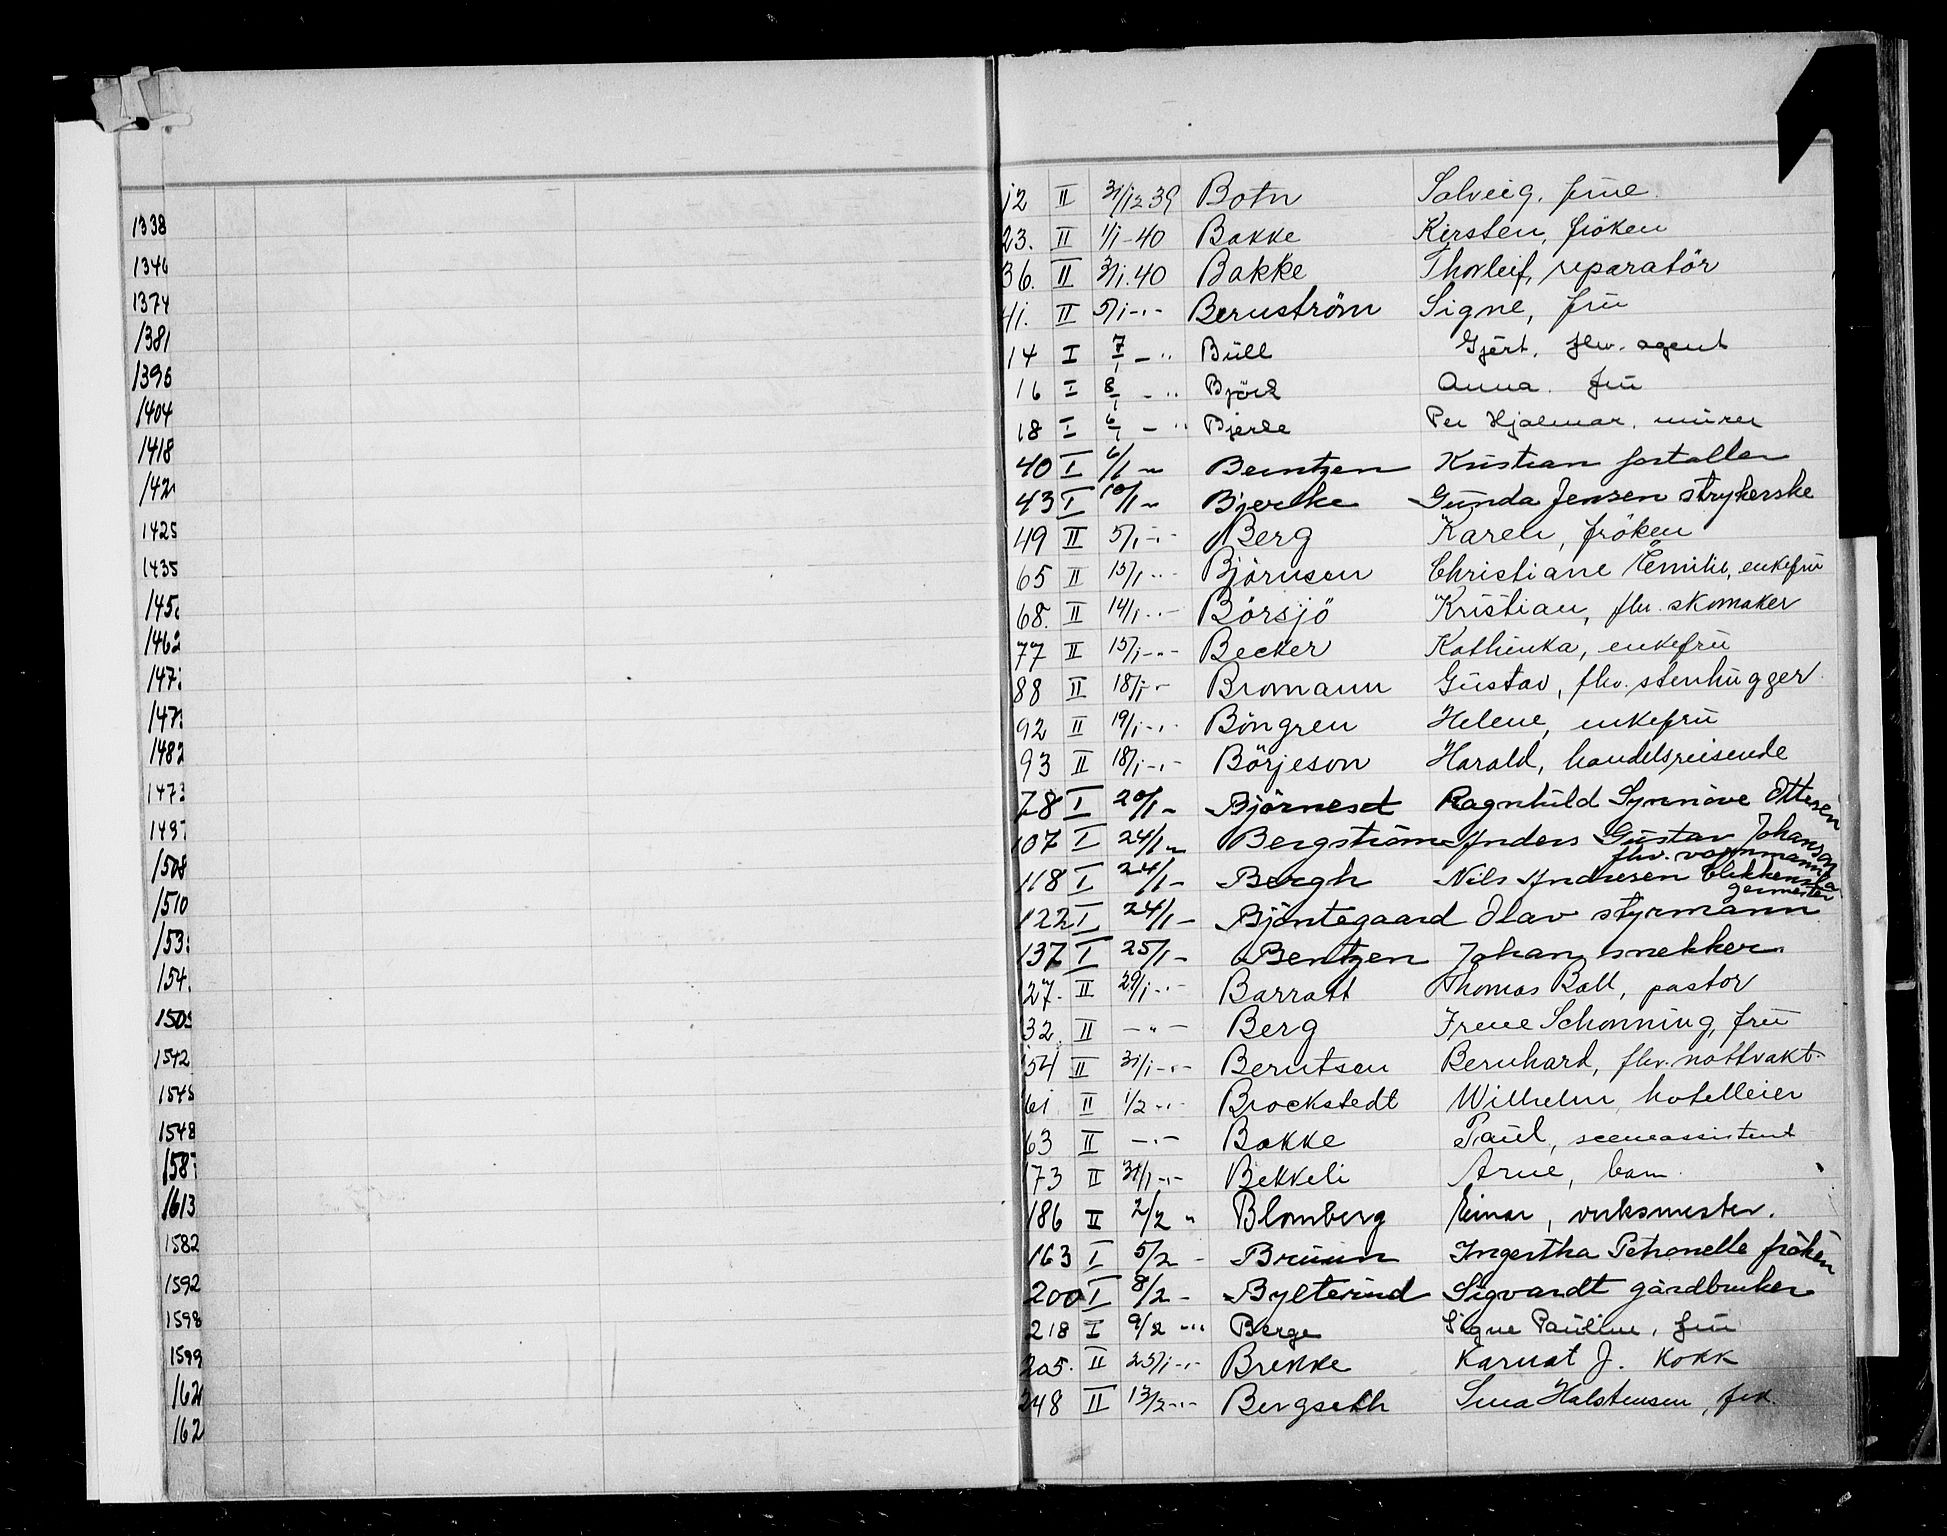 1338
1346
1374
1381
1395
1404
1418
142
1425
1435
145
1462
147
147
1482
1473
149
1508
1510
153
154
1505
1542
1545
1548
158
1613
1582
1592
1598
1599
162
162
12 II 31/12 39 Botn Solveig, frue
23. II 1/1-40 Bakke Kirsten, fröken
36. II 3/1.40 Bakke Thorleif, reparatör
41. II 5/1 -"- Bernström Signe, fru
14 I 7/1 - " Bull Gjert, fhv. agent
16 I 8/1 - " Björk Anna. fru
18 I 6/1 - " Bjerke Per Hjalmar, murer
40 I 6/1 " Berntzen Kristian forvalter
43 I 10/1 " Bjerke Gunda Jensen strykerske
49 II 5/1 -"- Berg Karen, fröken
65 II 15/1 -"- Björnsen Christiane Emilie, enkefru
68. II 14/1 -"- Börsjö Kristian, fhv. skomaker
77 II 15/1 -"- Becker Kathinka, enkefru
88 II 18/1 - Bromann Gustav, fhv. stenhugger
92 II 19/1 -"- Böngren Helene, enkefru
93 II 18/1 -"- Börjeson Harald, handelsreisende
78 I 20/1 " Björneset Ragnhild Synnöve Ottesen
107 I 24/1 " Bergström Anders Gustav Johanson
fhv. varmmann
118 I 24/1 - Bergh Nils Andresen blikkensla
germester
122 I 24/1 - Bjöntegaard Olav styrmann
137 I 25/1 - Bentzen Johan snekker
27. II 29/1 -"- Barratt Thomas Ball, pastor
32. II -"- Berg Irene Schonning, fru
54 II 31/1 -"- Berntsen Bernhard, fhv. nattvakt
61 II 1/2 -"- Brockstedt Wilhelm, hotelleier
63 II -"- Bakke Paul, sceneassistent
73 II 31/1 -"- Bekkeli Arne, barn
186 II 2/2 " Blomberg Einar, verksmester.
163 I 5/2 - Bruun Ingertha Petronelle fröken
200 I 8/2 - Bylterud Sigvardt gårdbruker
218 I 9/2 -"- Berge Signe Pauline, fru
205. II 25/1 -"- Brekke Karnot J. Kokk
248 II 13/2 -"- Bergseth Sina Halstensen, frk.